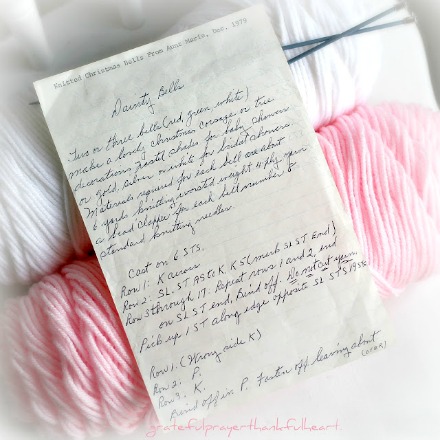 Knitted Christmas Bells From Aunt Marie, Dec. 1979
Dainty Bells
Two or three bells (red, green, white)
make a lovely Christmas corsage or tree
decorations, pastel shades for baby showers
or gold, silver or white for bridal showers.
Materials required for each bell are about
6 yards knitting worsted weight 4 ply yarn
a bead clapper for each bell number 8
standard knitting needles.
Cast on 6 STS.
Row 1: K across
Row 2: SL. ST AS to K, K 5 (mark SL ST End)
Row 3 through 17. Repeat rows 1 and 2, end
on SL ST end, Bind off. Do not cut yarn.
Pick up 1 ST along edge opposite SL STS
Row 1. (Wrong side K)
Row 2. P.
Row 3. K.
Bind off in P. Fasten off leaving about
(OVER)
gratefulprayerthankfulheart